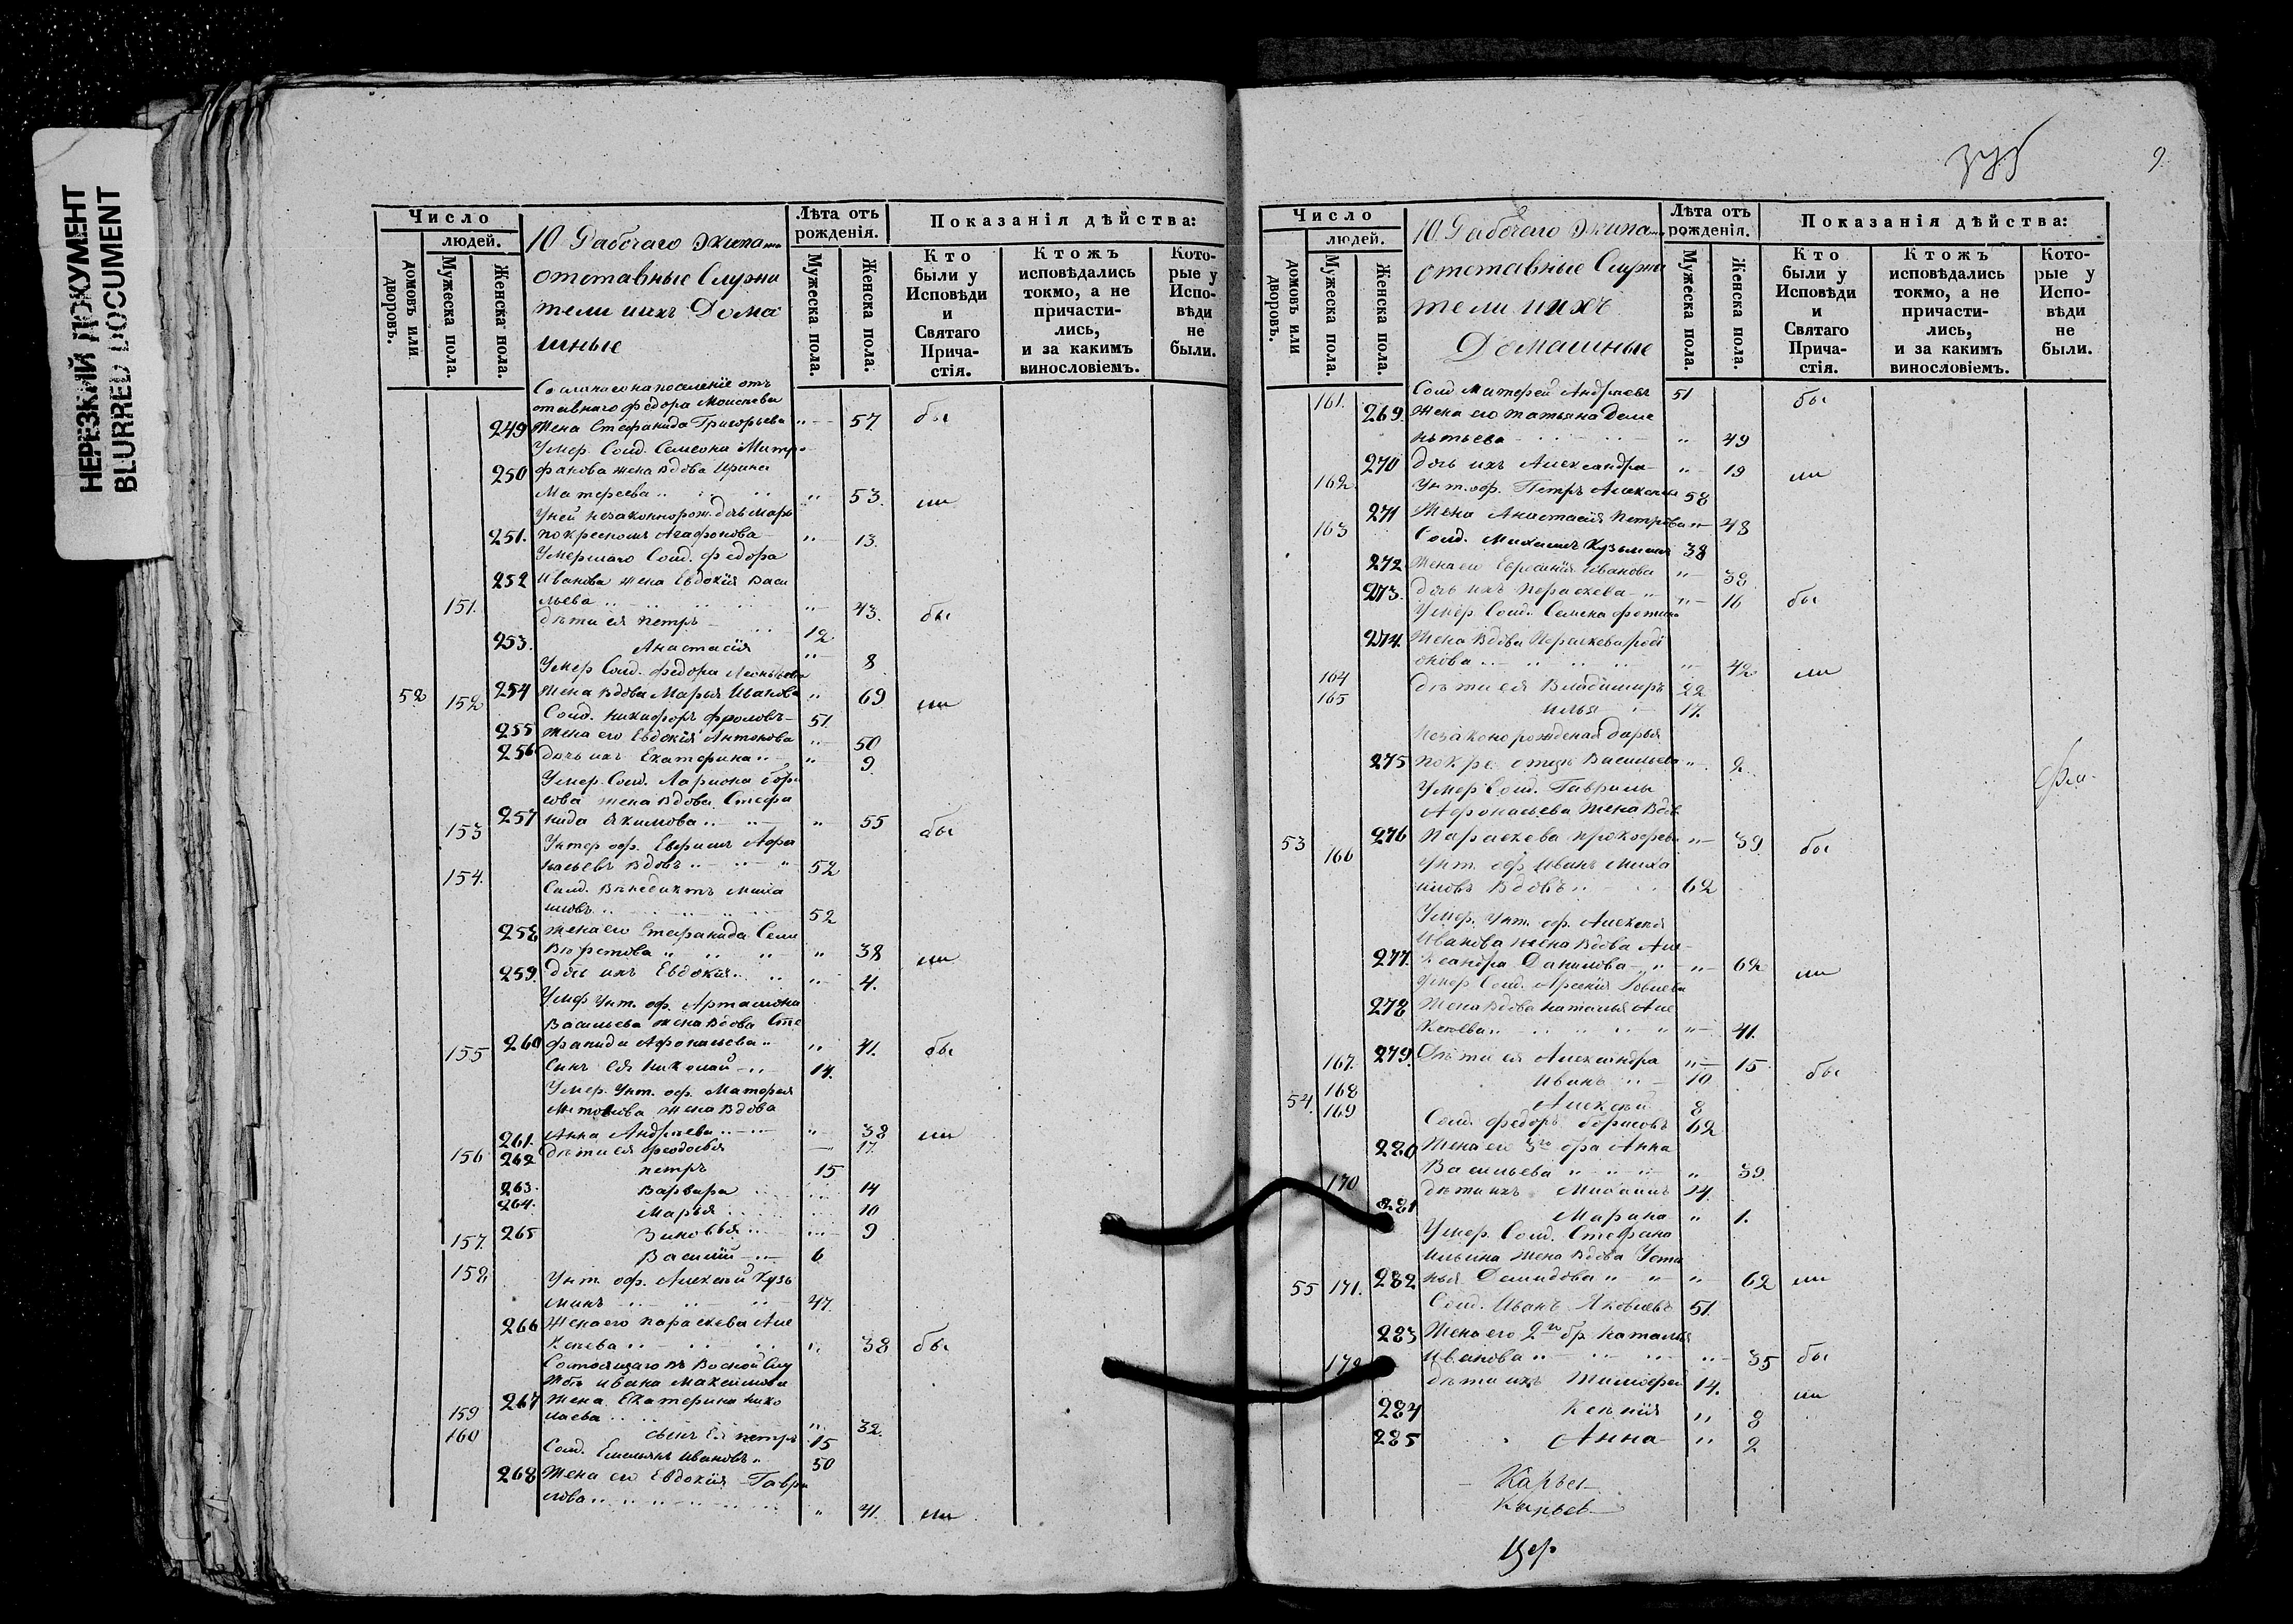 НЕРЕЗКИЙ ДОКУМЕНТ
BLURRED DOCUMENT
Число
людей.
домовъ или дворовъ.
Мужеска пола.
Женска пола.
10 Рабочаго Экипа
отставные Служи
тели ихъ Дома
шные
Лѣта отъ рожденія.
Мужеска пола.
Женска пола.
Показанія дѣйства:
Кто были у Исповѣди и Святаго Прича-стія.
Ктожъ исповѣдались токмо, а не причасти-лись, и за какимъ винословіемъ.
Кото-рые у Испо-вѣди не были.
Сосланаго на поселеніе отъ
ставнаго Федора Моисеева
249 Жена Стефанида Григорьева " 57. бы
Умер. Солд. Семиона Митро
250 фанова жена вдова Ирина
Матфеева " 53. ли
У ней незаконнорож. дочь Марь
251. по крестномъ Агафонова " 13.
Умершаго Солд. Федора
252 Иванова жена Евдокія Васи
льева " 43. бы
151. дѣти ея Петръ 12
253. Анастасія " 8
Умер. Солд. Федора Леонтьева
254 Жена вдова Марья Иванова " 69 ли
52 152 Солд. Никифоръ Фроловъ 51
255 Жена его Евдокія Антонова " 50
256 дочь ихъ Екатерина " 9
Умер. Солд. Лариона Бори
сова жена вдова Стефа
257 нида Якимова " 55 бы
153 Унтер оф. Евфимъ Афа
насьевъ вдовъ 52
154. Солд. Венедиктъ Миха
йловъ 52
258 жена его Стефанида Сели
верстова " 38 ли
259. дочь ихъ Евдокія " 4.
Умер Унт. оф. Артамона
Васильева жена вдова Сте
260 фанида Афонасьева " 41. бы
155 Сынъ ея Николай 14.
Умер. Унт. оф. Матфея
жена вдова
261. Анна Андреева " 38 ли
262 дѣти ея Феодосья 17.
156 Петръ 15
263. Варвара 14
264. Марья 10
265 Зиновья 9
157. Василій 6
158 Унт. оф. Алексѣй Кузь
минъ 47.
266 Жена его Параскева Але
ксѣева " 38 бы
Состоящаго въ Военой Слу
жбѣ Ивана Максимова
267 Жена Екатерина Нико
лаева " 32.
159 сынъ ея Петръ 15
160 Солд. Емельянъ Ивановъ 50
268 Жена его Евдокія Гаври
лова " 41. ли
375
9
Число
людей.
домовъ или дворовъ.
Мужеска пола.
Женска пола.
10 Рабочаго Экипа
отставные Служи
тели ихъ
Домашные
Лѣта отъ рожденія.
Мужеска пола.
Женска пола.
Показанія дѣйства:
Кто были у Исповѣди и Святаго Прича-стія.
Ктожъ исповѣдались токмо, а не причасти-лись, и за какимъ винословіемъ.
Кото-рые у Испо-вѣди не были.
161. Солд. Матфей Андреевъ 51 бы
269. Жена его Татьяна Деме
нтьева " 49
270 дочь ихъ Александра " 19 ли
162. Унт. оф. Петръ Алексѣевъ 58
271 Жена Анастасія Петрова " 48
163 Солд. Михаилъ Кузьминъ 38
272 Жена его Ефросинія Иванова " 38
273. дочь ихъ Параскева " 16 бы
Умер. Солд. Семена
274. Жена вдова Параскева Роді
онова " 42 ли
164 дѣти ея Владимиръ 22
165 Илья 17.
Незаконорожденая Дарья
275 по кре. отцу Васильева " 2
Умер Солд. Гаврилы
Афонасьева жена вдов
276 Параскева Прокофьева " 39 бы
53 166 Унт. оф. Иванъ Миха
йловъ вдовъ 62
Умер. Унт. оф. Алексѣя
Иванова жена вдова Але
277. ксандра Данилова " 62 ли
Умер Солд. Арсенія
278 Жена вдова Наталья Але
ксѣева " 41.
279. Дѣти ея Александра " 15 бы
167. Иванъ 10
168 Алексѣй 8
54. 169 Солд. Федоръ Борисовъ 62
280 Жена его 3го бра Анна
Васильева " 39
170 дѣти ихъ Михаилъ 14.
281 Марина " 1.
Умер. Солд. Стефана
Ильина жена вдова Усти
282 нья Демидова " 62 ли
55 171. Солд. Иванъ Яковлевъ 51.
283 Жена его 2го бр. Наталья
Иванова " 35 бы
172 дѣти ихъ Тимофей 14. ли
284 Ксенія " 8
285 Анна " 2